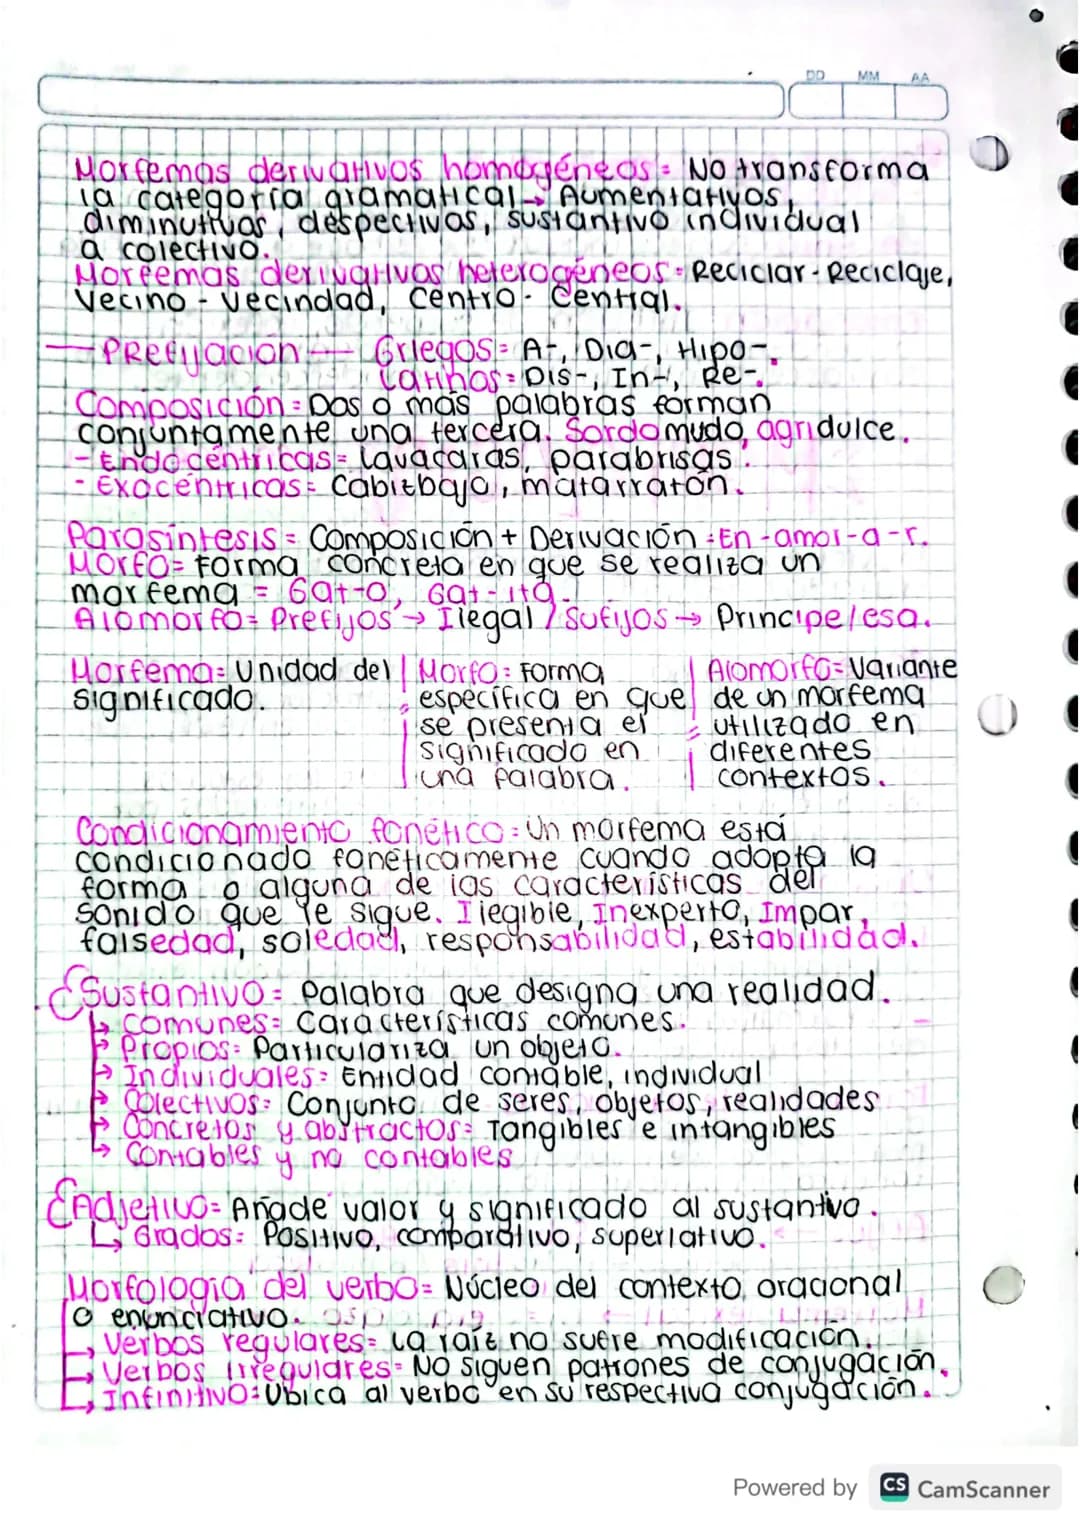 DD MM AA
Morfemas derivativos homogéneos = No transforma
la categoría gramatical → Aumentativos,
diminutivos, despectivos, sustantivo individual
a colectivo.
Morfemas derivativos heterogéneos = Reciclar - Reciclaje,
Vecino - Vecindad, Centro - Central.
— Prefijación — Griegos = A-, Dia-, Hipo-.
Latinos = Dis-, In-, Re-.
Composición = Dos o más palabras forman
conjuntamente una tercera. Sordomudo, agridulce.
- Endocéntricas = Lavacaras, parabrisas.
- Exocéntricas = Cabizbajo, matarratón.
Parasíntesis = Composición + Derivación = En-amor-a-r.
Morfo = Forma concreta en que se realiza un
morfema = Gat-o, Gat-ito.
Alomorfo = Prefijos → Ilegal / Sufijos → Principe/esa.
Morfema = Unidad del | Morfo = Forma | Alomorfo = Variante
significado. específica en que de un morfema
se presenta el utilizado en
significado en diferentes
una palabra. contextos.
Condicionamiento fonético = Un morfema está
condicionado fonéticamente cuando adopta la
forma o alguna de las características del
sonido que le sigue. Ilegible, Inexperto, Impar,
falsedad, soledad, responsabilidad, estabilidad.
Sustantivo = Palabra que designa una realidad.
↳ Comunes = Características comunes.
→ Propios = Particulariza un objeto.
→ Individuales = Entidad contable, individual
→ Colectivos = Conjunto de seres, objetos, realidades
→ Concretos y abstractos = Tangibles e intangibles
→ Contables y no contables
Adjetivo = Añade valor y significado al sustantivo.
↳ Grados = Positivo, comparativo, superlativo.
Morfología del verbo = Núcleo del contexto oracional
o enunciativo.
→ Verbos regulares = La raíz no sufre modificación.
→ Verbos Irregulares = No siguen patrones de conjugación.
→ Infinitivo = Ubica al verbo en su respectiva conjugación.
Powered by CS CamScanner